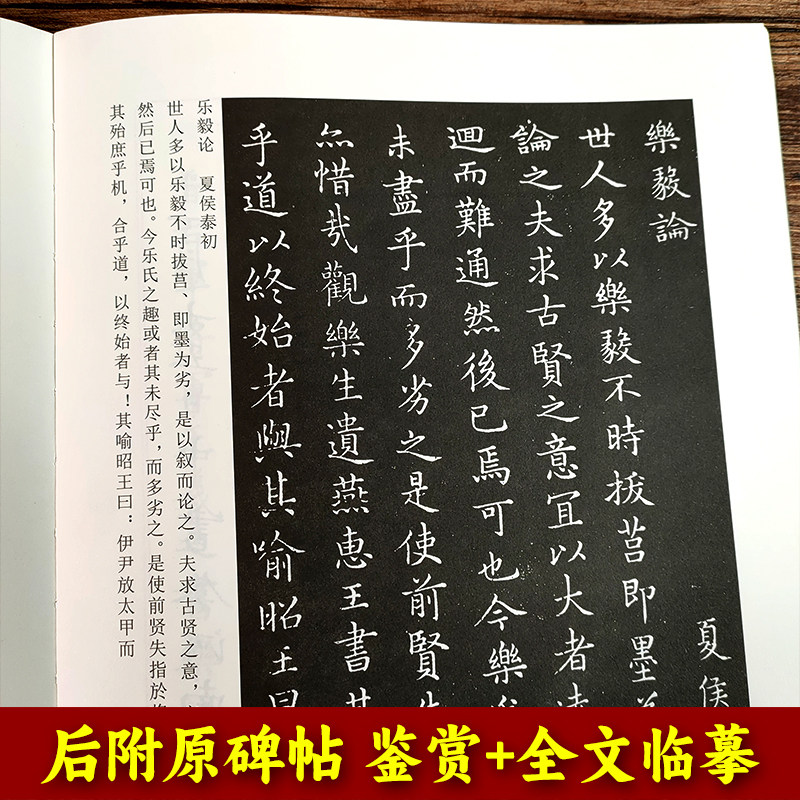 樂毅論 夏侯
世人多以樂毅不時拔莒即墨
論之夫求古賢之意宜以大者
迴而難通然後已焉可也今樂
未盡乎而多劣之是使前賢
亦惜哉觀樂生遺燕惠王書其
乎道以終始者與其喻昭王曰
乐毅论 夏侯泰初
世人多以乐毅不时拔莒、即墨为劣，是以叙而论之。夫求古贤之意，
然后已焉可也。今乐氏之趣或者其未尽乎，而多劣之。是使前贤失指於
其殆庶乎机，合乎道，以终始者与！其喻昭王曰：伊尹放太甲而
后附原碑帖 鉴赏+全文临摹